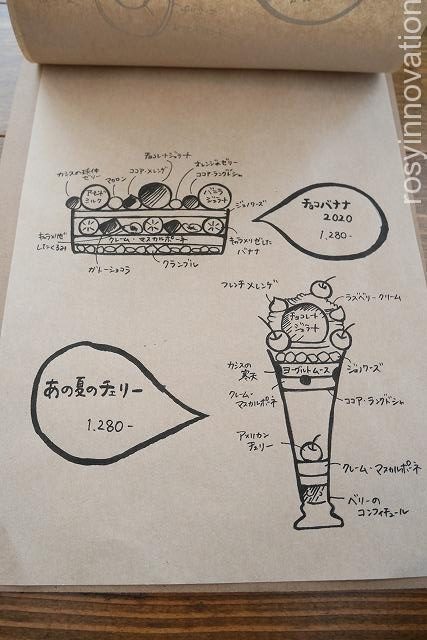 チョコレートジェラート
オレンジのゼリー
ココア・メレンゲ
ココア・ラングドシャ
カシスの球体
ゼリー
マカロン
アーモンド
ミルク
バニラ
ジェラート
ジェノワーズ
キャラメリゼ
したくるみ
クレーム・マスカルポーネ
キャラメリゼした
バナナ
ガトーショコラ
クランブル
チョコバナナ
2020
1.280-
フレンチメレンゲ
ラズベリークリーム
チョコレート
ジェラート
カシスの
寒天
ヨーグルトムース
ジェノワーズ
クレーム・
マスカルポーネ
ココア・ラングドシャ
あの夏のチェリー
1.280-
アメリカン
チェリー
クレーム・マスカルポーネ
ベリーの
コンフィチュール
rosyinnovation